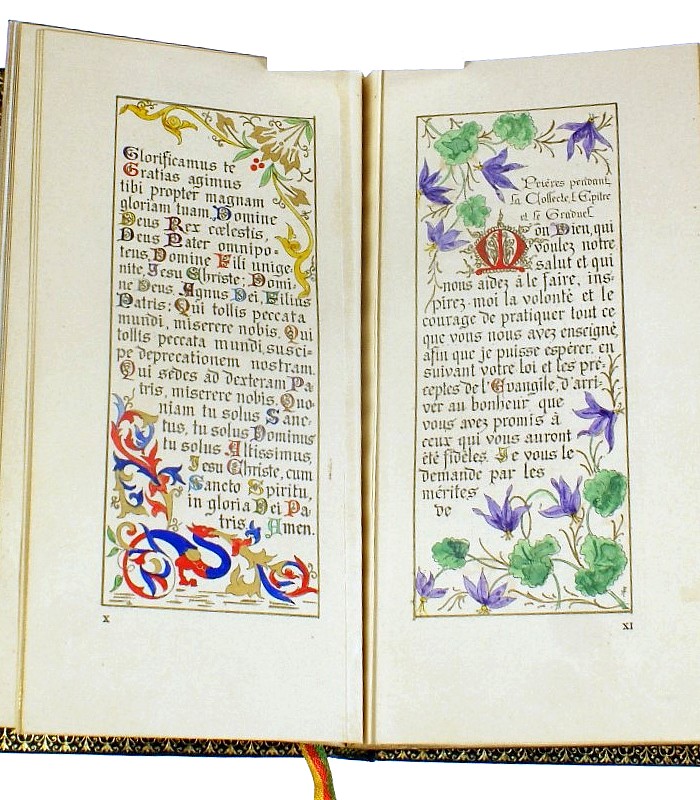 Glorificamus te
Gratias agimus
tibi propter magnam
gloriam tuam, Domine
Deus Rex cœlestis,
Deus Pater omnipo-
tens, Domine Fili unige-
nite, Jesu Christe; Domi-
ne Deus Agnus Dei, Filius
Patris; Qui tollis peccata
mundi, miserere nobis. Qui
tollis peccata mundi, susci-
pe deprecationem nostram.
Qui sedes ad dexteram Pa-
tris, miserere nobis. Quo-
niam tu solus Sanc-
tus, tu solus Dominus
tu solus Altissimus
Jesu Christe, cum
Sancto Spiritu,
in gloria Dei Pa-
tris. Amen.
X
Prières pendant
la Collecte, l'Epître
et le Graduel
Mon Dieu, qui
voulez notre
salut et qui
nous aidez à le faire, ins-
pirez-moi la volonté et le
courage de pratiquer tout ce
que vous nous avez enseigné,
afin que je puisse espérer, en
suivant votre loi et les pré-
ceptes de l'Evangile, d'arri-
ver au bonheur que
vous avez promis à
ceux qui vous auront
été fidèles. Je vous le
demande par les
mérites
de
XI